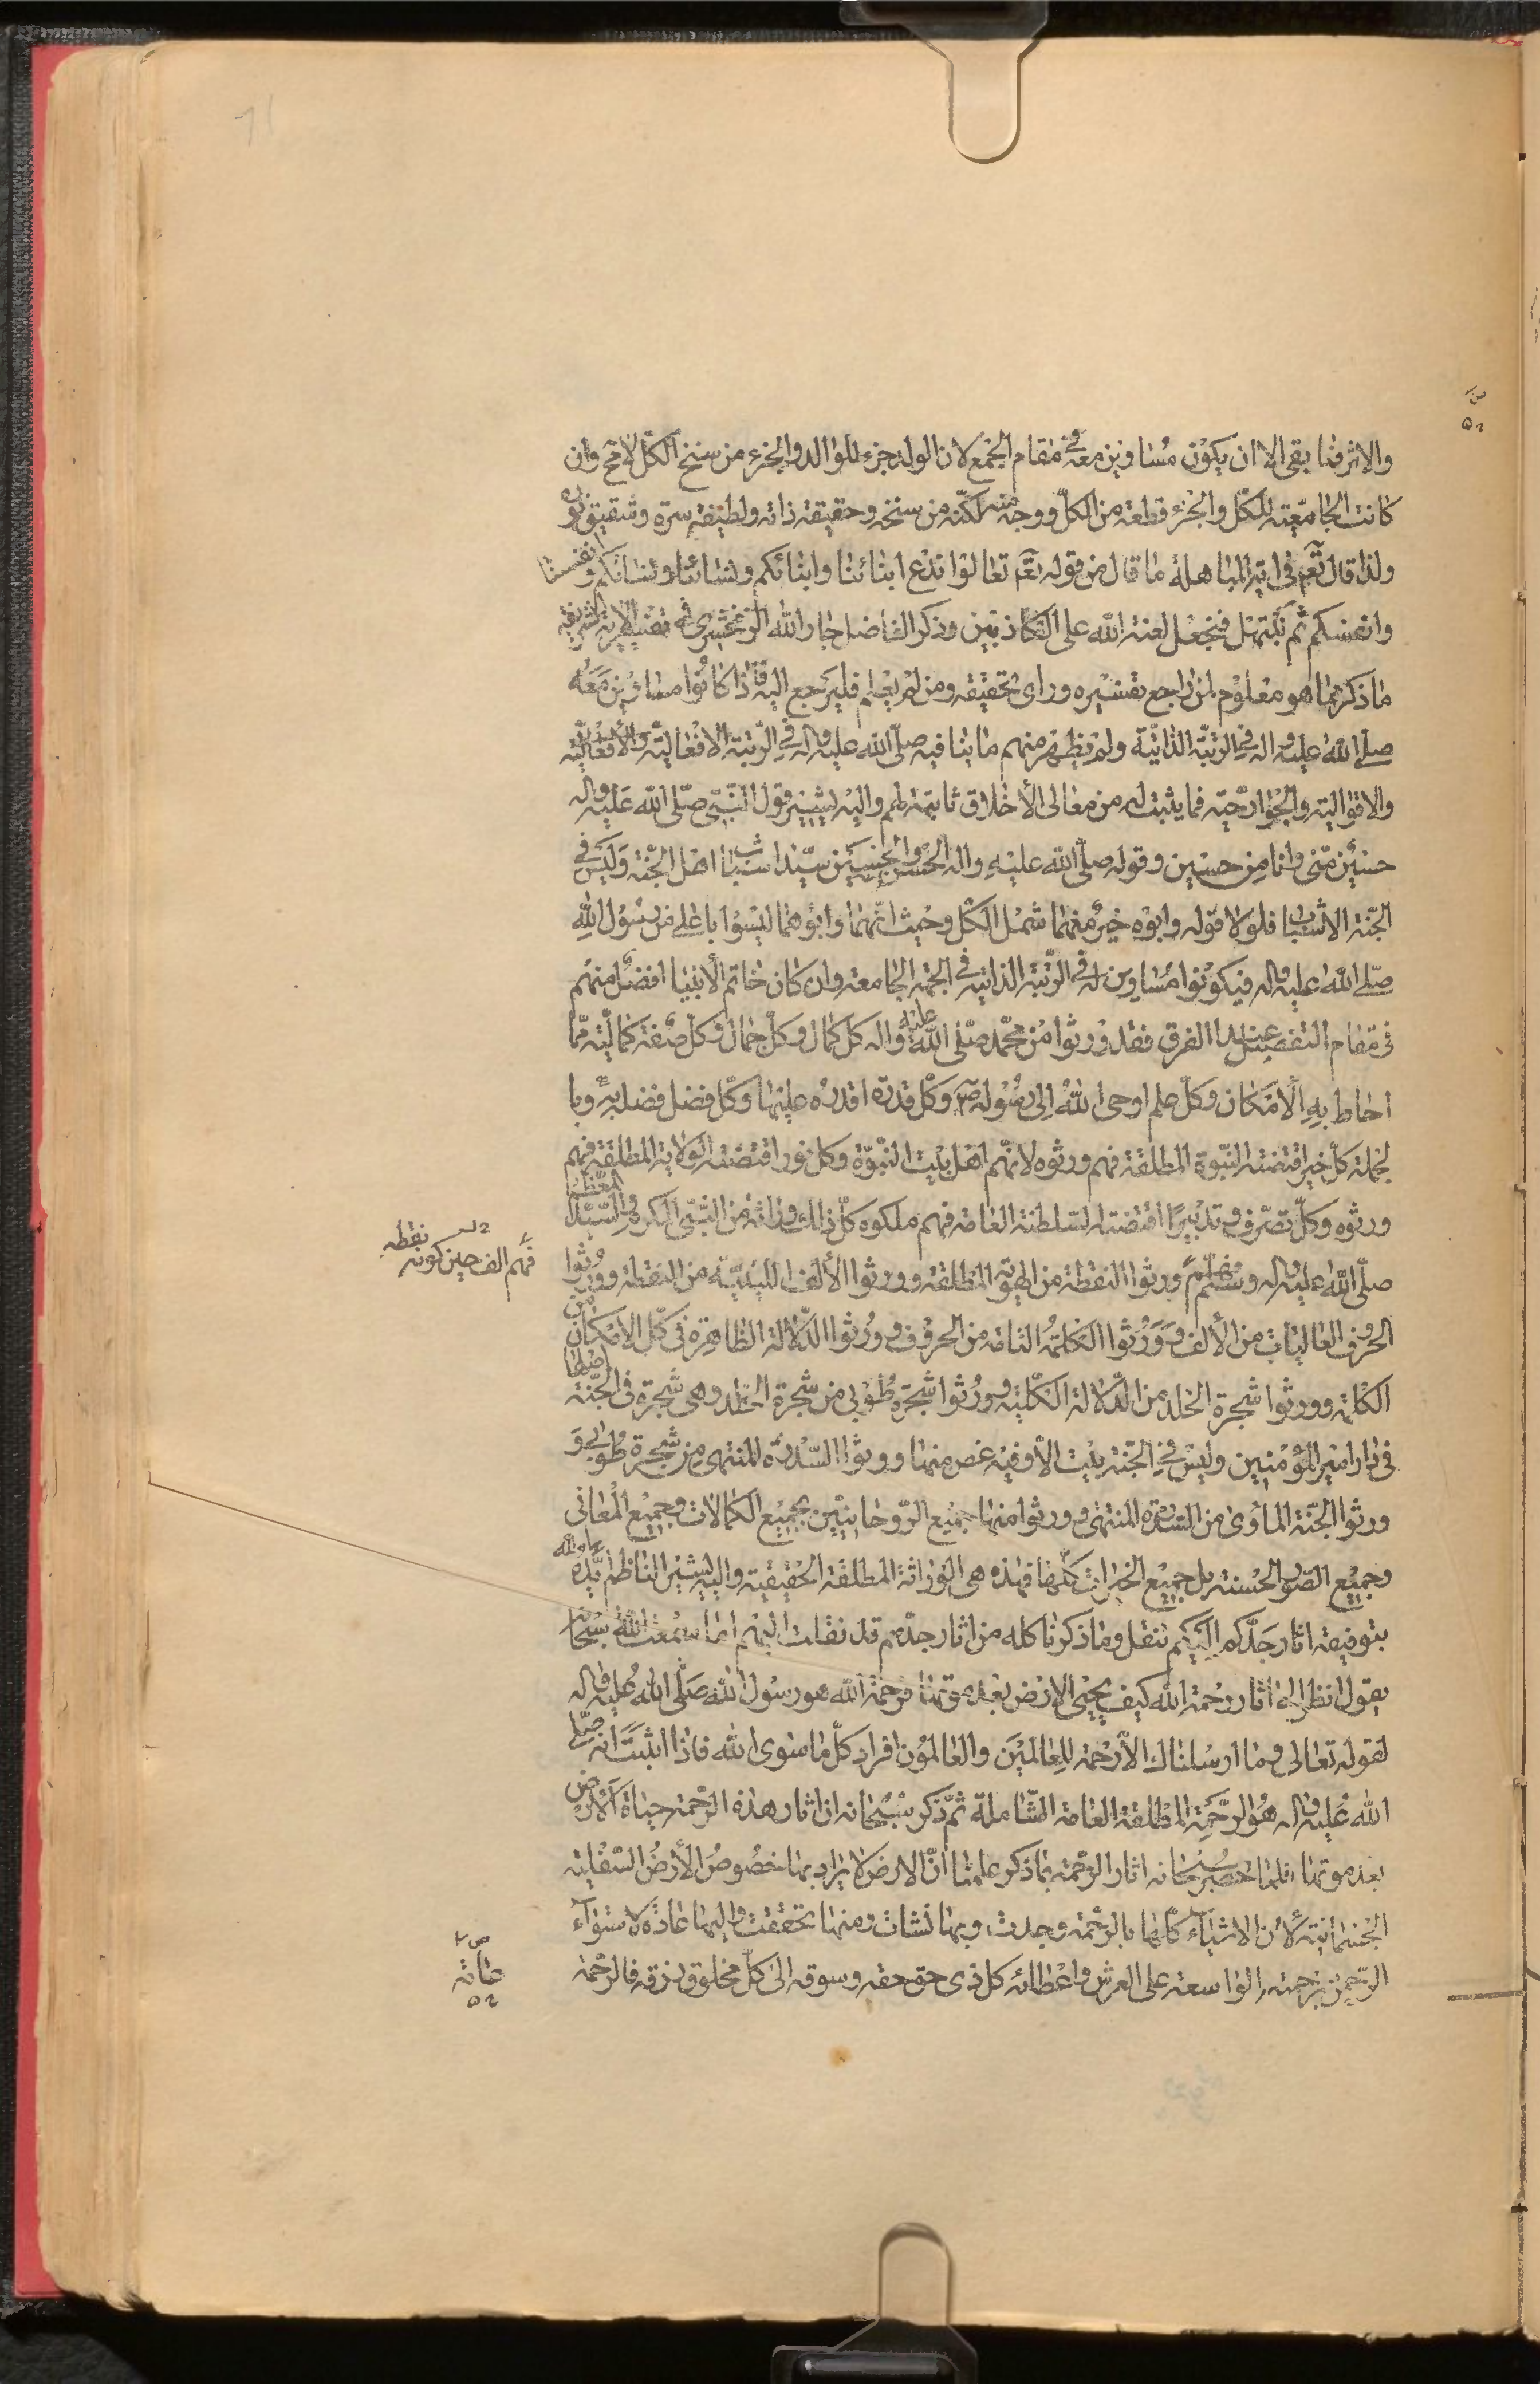 والاثر فما بقى الا ان يكون مساوين معه فى مقام الجمع لان الولد جزء للوالد والجزء من سنخ الكل لا مح وان
كانت الجامعية للكل والجزء قطعة من الكل ووجه منه لكنه من سنخه وحقيقة ذاته ولطيفة سره وشقيق نوره
ولذا قال تعم فى اية المباهلة ما قال من قوله تعم تعالوا ندع ابنائنا وابنائكم ونسائنا ونسائكم وانفسنا
وانفسكم ثم نبتهل فنجعل لعنة الله على الكاذبين وذكر الفاضل جار الله الزمخشرى فى تفسير الاية الشريفة
ما ذكر مما هو معلوم لمن راجع تفسيره وراى تحقيقه ومن لم يعلم فليرجع اليه فاذا كانوا مساوين معه
صلى الله عليه واله فى الرتبة الذاتية ولم يظهر منهم ما ينافيه صلى الله عليه واله فى الرتبة الافعالية
والاقوالية والجوارحية فما يثبت له من معالى الأخلاق ثابتة لهم واليه يشير قول النبى صلى الله عليه واله
حسين منى وانا من حسين وقوله صلى الله عليه واله الحسن والحسين سيدا شباب اهل الجنة وليس فى
الجنة الا شباب فلولا قوله وابوه خير منهما شمل الكل وحيث انهما وابوهما ليسوا باعلى من رسول الله
صلى الله عليه واله فيكونوا مساوين له فى الرتبة الذاتية فى الجهة الجامعة وان كان خاتم الأنبيا افضل منهم
فى مقام التفصيل عند الفرق فقد ورثوا من محمد صلى الله عليه واله كل كمال وكل جمال وكل صفة كمالية مما
احاط به الامكان وكل علم اوحى الله الى رسوله ص وكل قدرة اقدره عليها وكل فضل فضله به وبا
لجملة كل خير اقتضته النبوة المطلقة فهم ورثوه لانهم اهل بيت النبوة وكل نور اقتضته الولاية المطلقة فهم
ورثوه وكل تصرف وتدبير اقتضته السلطنة العامة فهم ملكوه كل ذلك وراثة من النبى الكريم والسيد المعظم
صلى الله عليه واله وسلم فهم ورثوا النقطة من الهوية المطلقة وورثوا الألف اللينية من النقطة وورثوا
الحروف العاليات من الألف وورثوا الكلمة التامة من الحروف وورثوا الدلالة الظاهرة فى كل الامكان من
الكلمة وورثوا شجرة الخلد من الدلالة الكلية وورثوا شجرة طوبى من شجرة الخلد وهى شجرة فى الجنة اصلها
فى دار امير المؤمنين وليس فى الجنة بيت الا وفيه غصن منها وورثوا السدرة المنتهى من شجرة طوبى و
ورثوا الجنة المأوى من السدرة المنتهى وورثوا منها جميع الروحانيين بجميع الكمالات وجميع المعانى
وجميع الصور الحسنة بل جميع الخيرات كلها فهذه هى الوراثة المطلقة الحقيقية واليه يشير الناظم ايده الله
بتوفيقه اثار جدكم اليكم تنقل وما ذكرنا كله من اثار جدهم قد نقلت اليهم اما سمعت الله سبحانه
يقول انظر الى اثار رحمة الله كيف يحيى الارض بعد موتها فرحمة الله هو رسول الله صلى الله عليه واله
لقوله تعالى وما ارسلناك الا رحمة للعالمين والعالمون افراد كل ما سوى الله فاذا اثبت انه صلى
الله عليه واله هو الرحمة المطلقة العامة الشاملة ثم ذكر سبحانه ان اثار هذه الرحمة حياة الارض
بعد موتها فلما حصر سبحانه اثار الرحمة بما ذكر علمنا ان الارض لا يراد بها خصوص الأرض السفلية
الجسمانية لأن الاشياء كلها بالرحمة وجدت وبها نشات ومنها تحققت واليها عادة لاستواء
الرحمن برحمته الواسعة على العرش واعطائه كل ذى حق حقه وسوقه الى كل مخلوق رزقه فالرحمة
فهم الف حين كونه نقطه
عامة